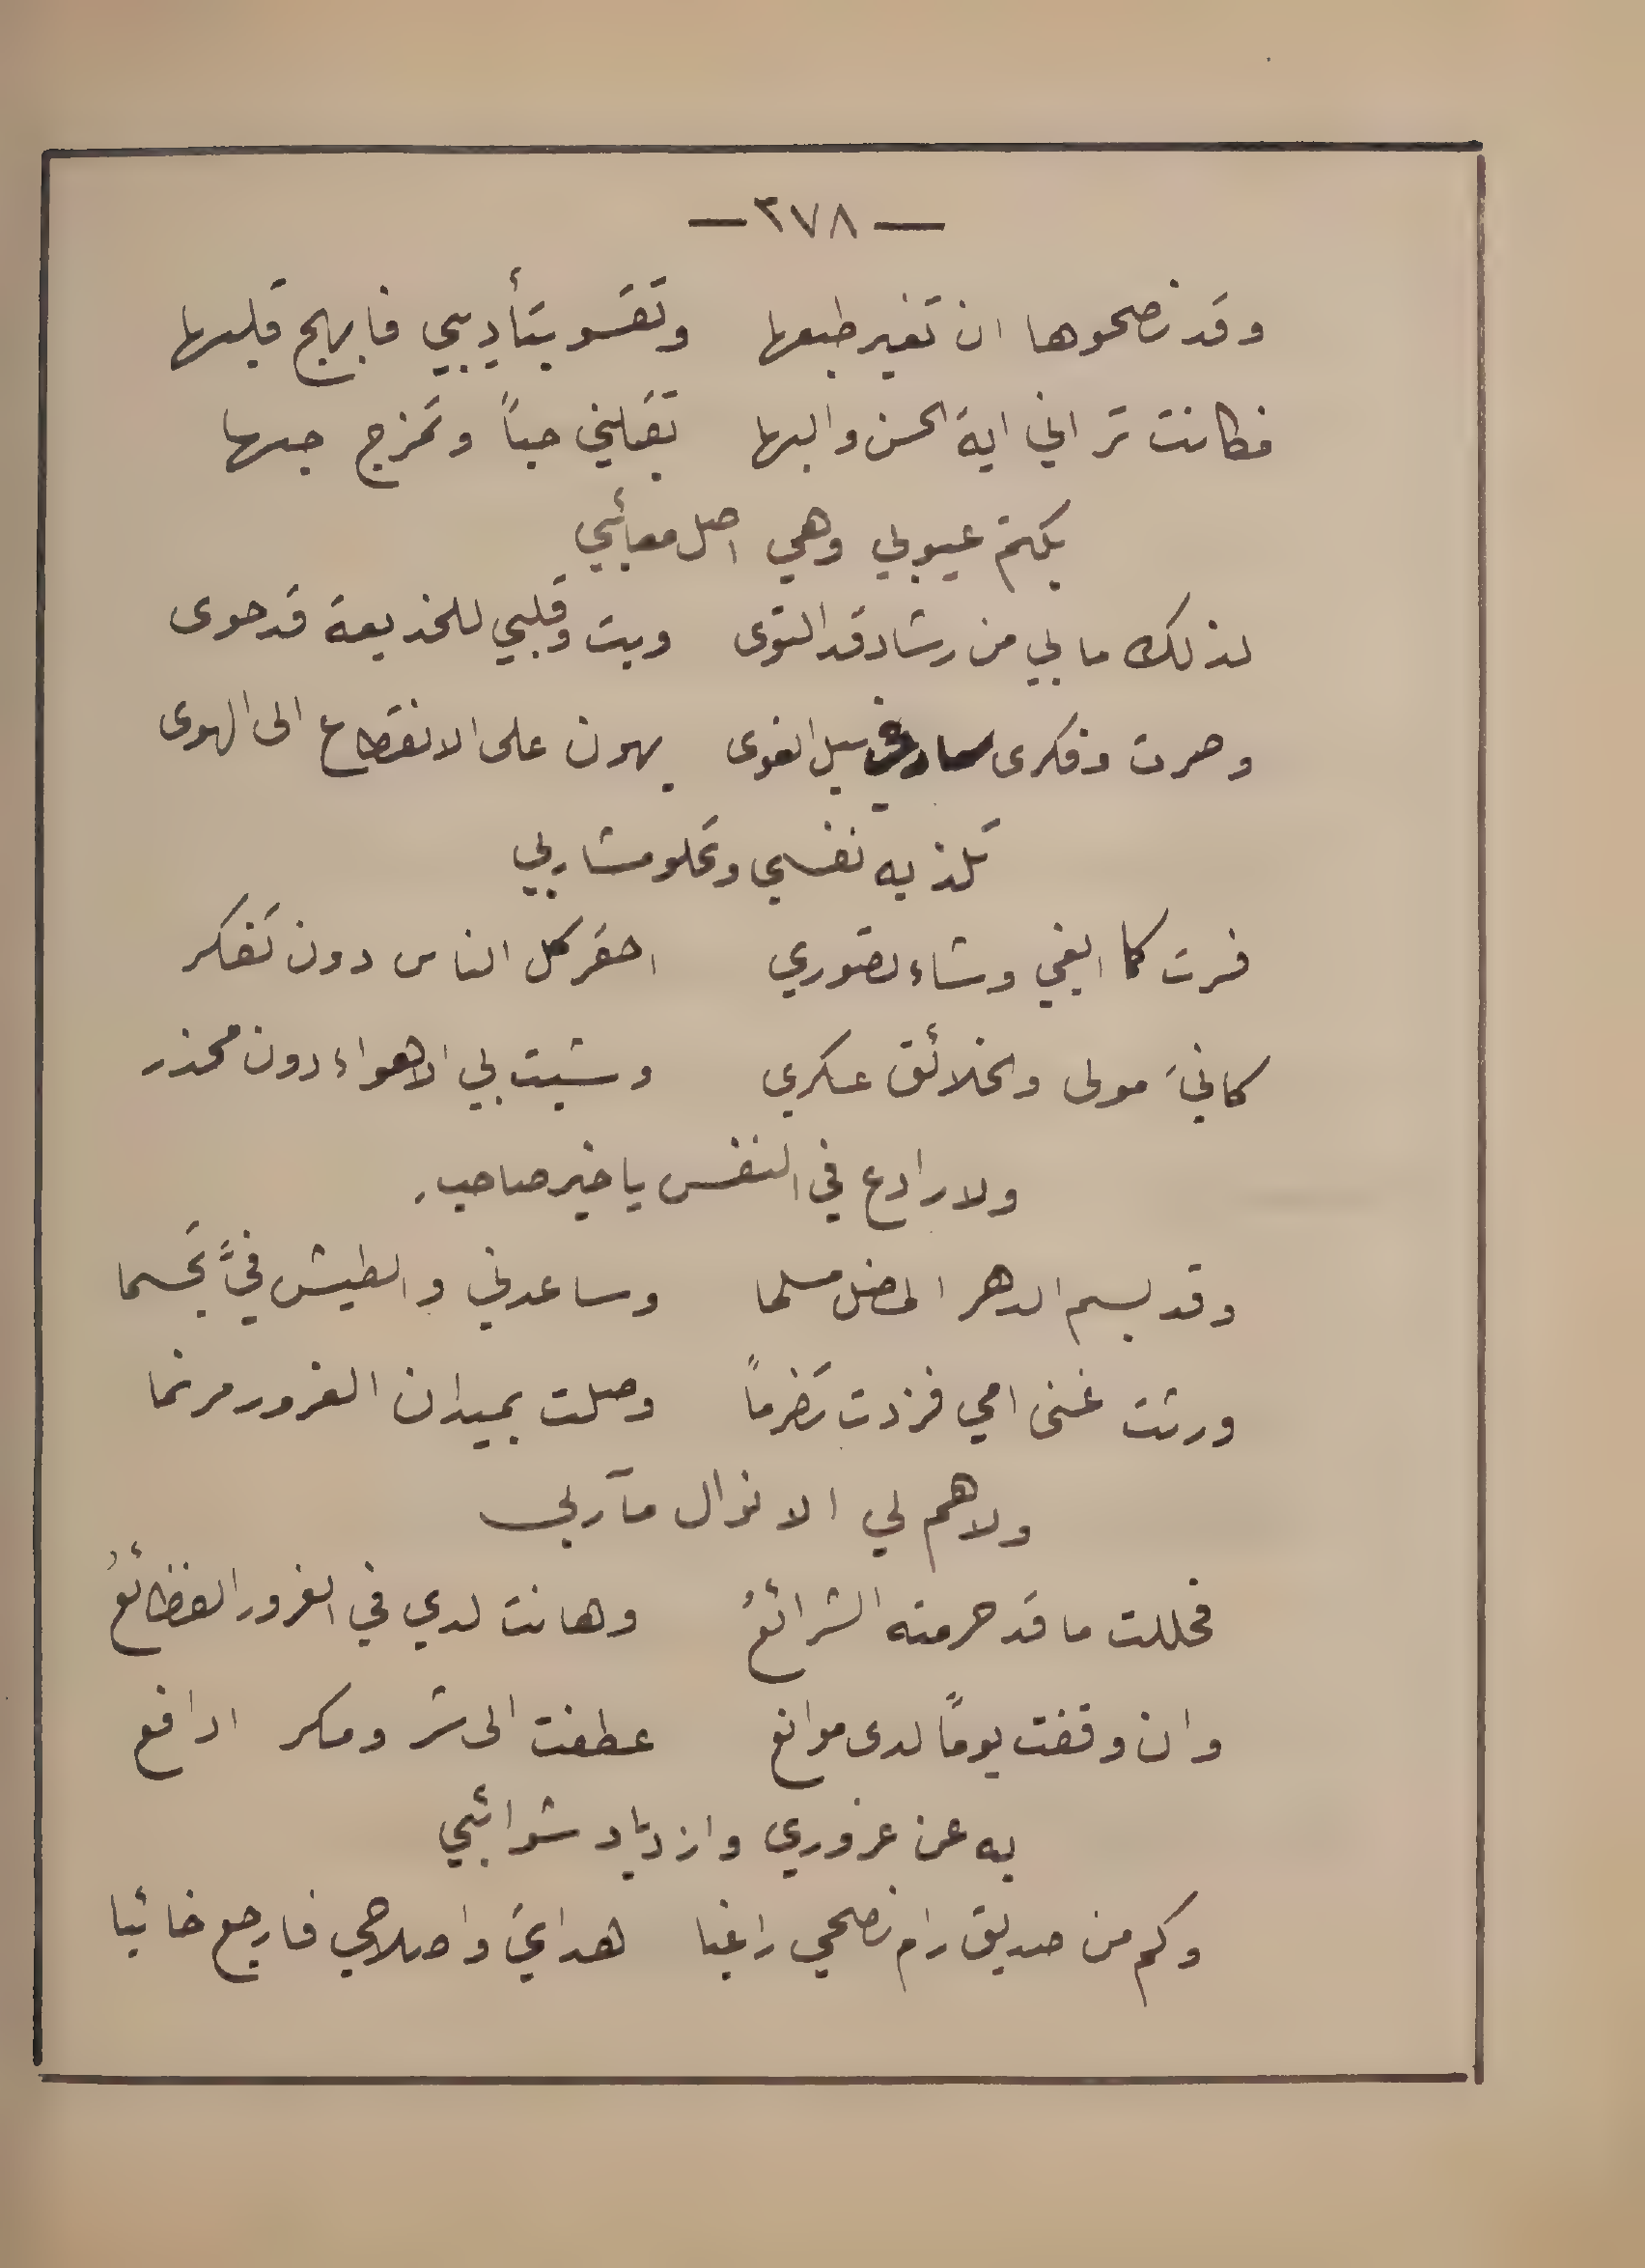 — ٢٧٨ —
وقد نصحوها ان تغير طبعها وتقسو بتأديبي فابهج قلبها
فكانت تراني اية الحسن والبها تقبلني حباً وتمزج حبها
بكتم عيوبي وهي اصل معائبي
لذلك ما بي من رشاد قد التوى وبت وقلبي للخديعة قد حوى
وصرت وفكرى في سبل الغوى يهون على الانقطاع الى الهوى
تلذ به نفسي وتحلو مشاربي
فسرت كما ابغي وشاء تصوري احقر كل الناس دون تفكر
كانيَ مولى والخلائق عسكري وشبت بي الاهواء دون محذر
ولا رادع في النفس يا خير صاحب
وقد بسم الدهر المضل مسلما وساعدني والطيش فيَّ تجسما
ورثت غنى امي فزدت تضرماً وصلت بميدان الغرور مرنما
ولا هم لي الا نوال مآربي
فحللت ما قد حرمته الشرائعُ وهانت لدي في الغرور الفظائعُ
وان وقفت يوماً لدى موانع عطفت الى شر ومكر ادافع
به عن غروري وازدياد شوائبي
وكم من صديق رام نصحي راغبا هدايَ واصلاحي فارجع خائبا